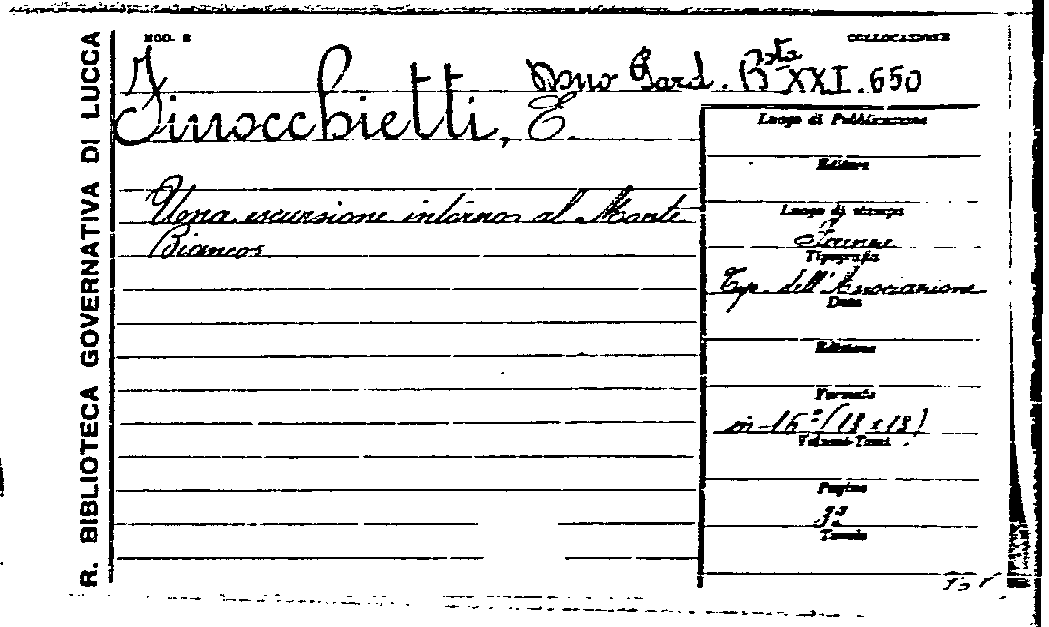 R. BIBLIOTECA GOVERNATIVA DI LUCCA
MOD. E
COLLOCAZIONE
Dono Pard. Bsta XXI.650
Finocchietti, E.
Una escursione intorno al Monte
Bianco
Luogo di Pubblicazione
Editore
Luogo di stampa
Firenze
Tipografia
Tip. dell'Associazione
Data
Edizione
Formato
in-16º (18 x 18)
Volumi-Tomi
Pagine
Tavole